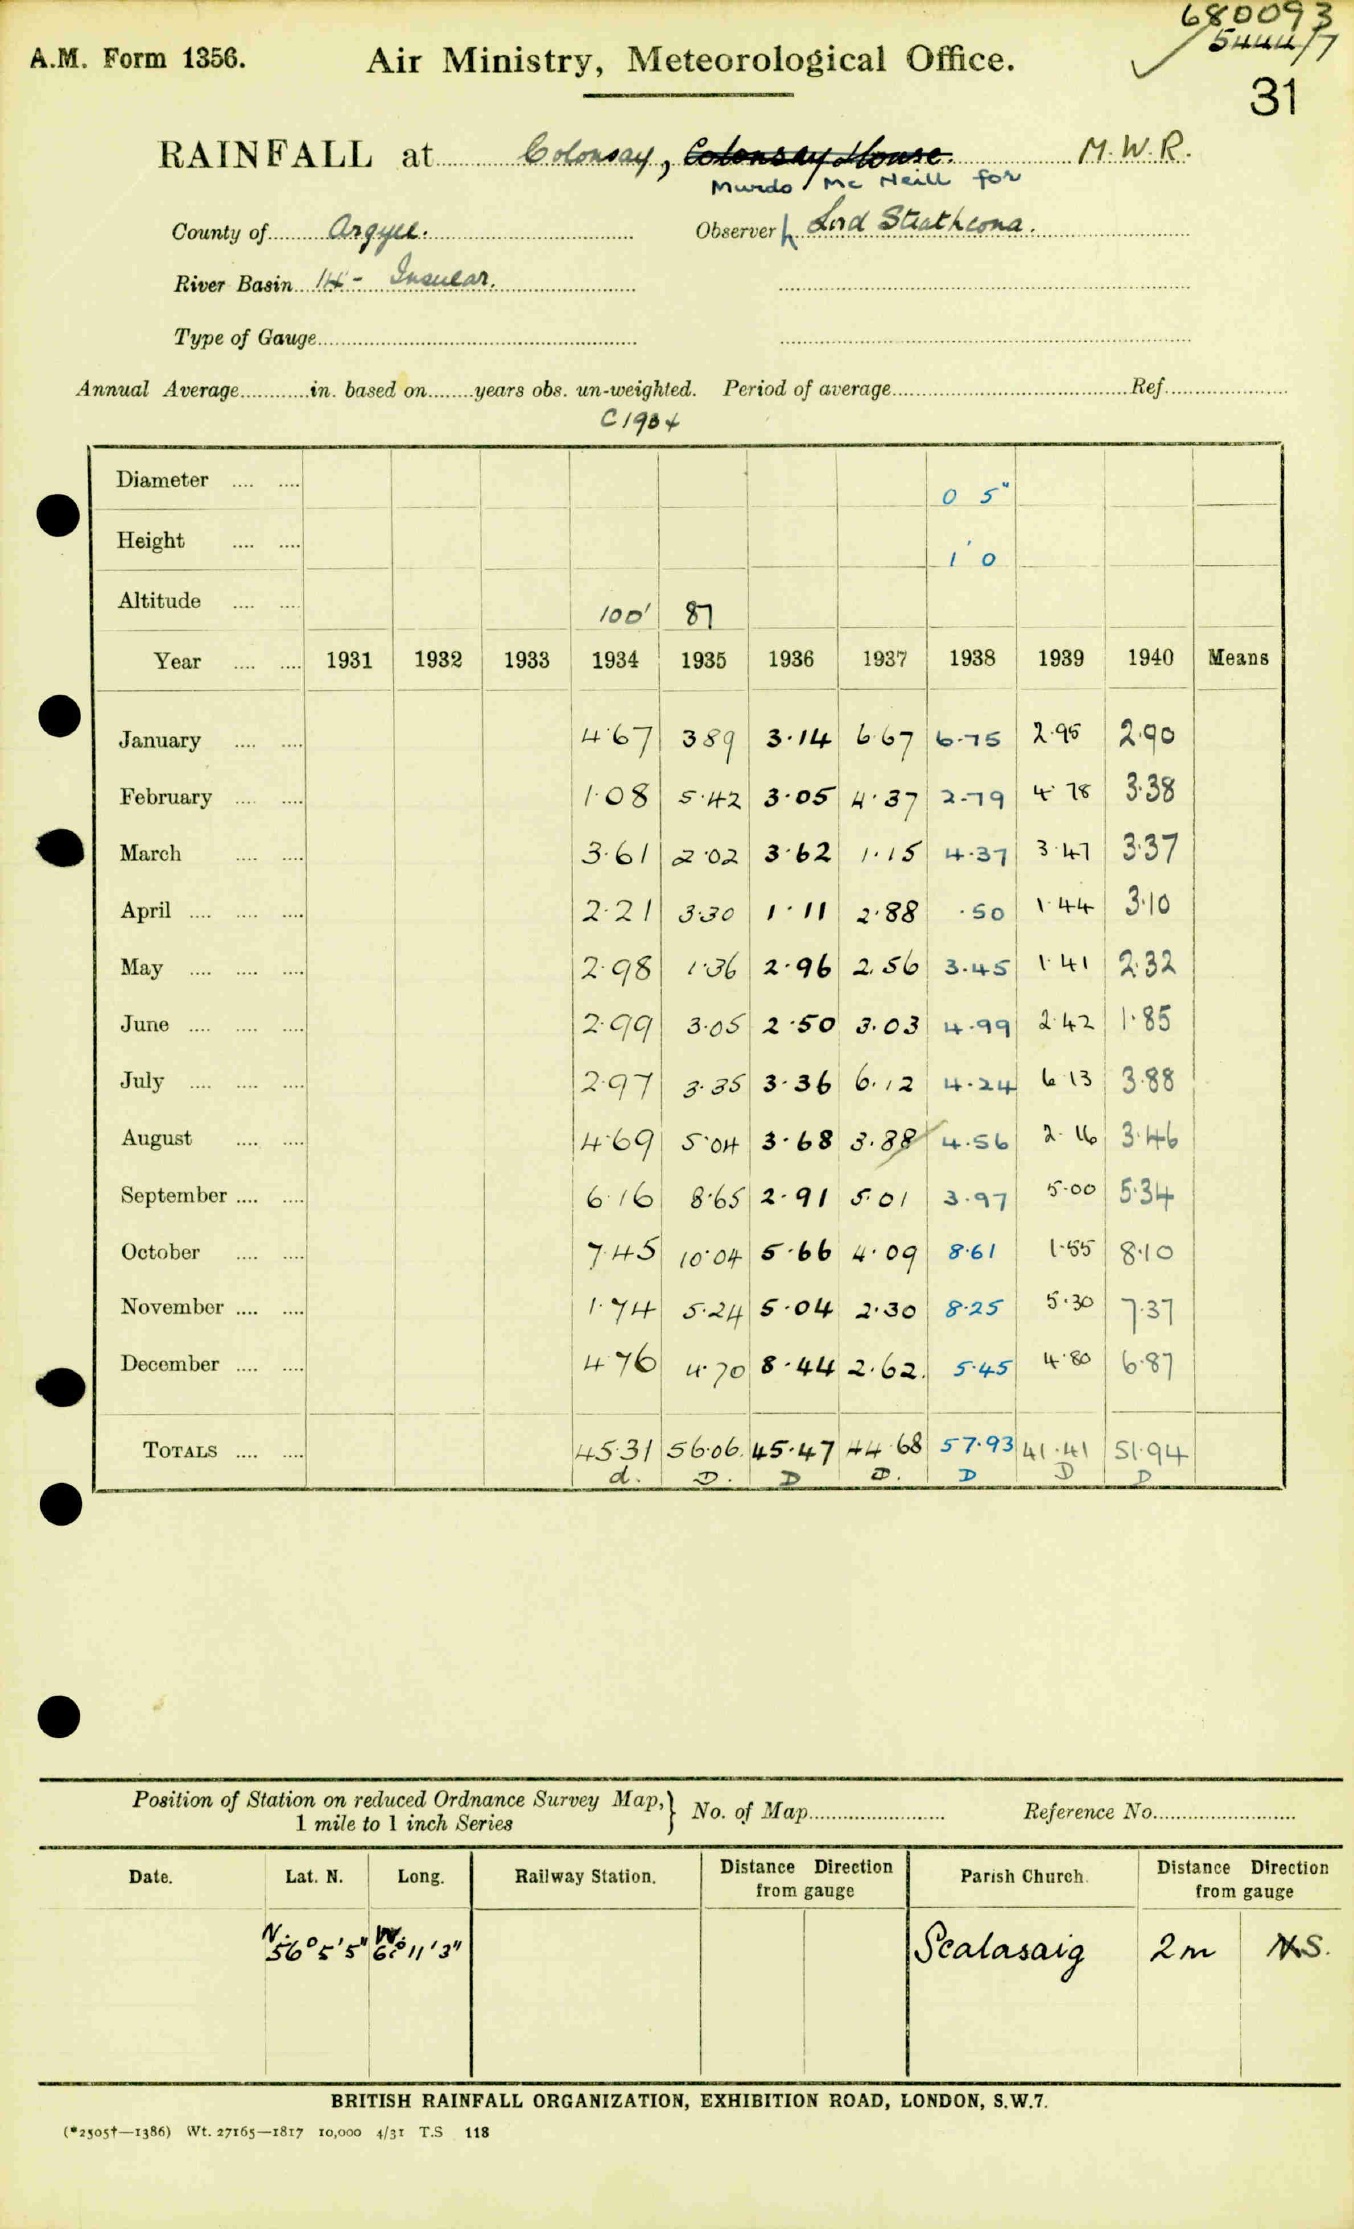 680093
5444/7
A.M. Form 1356. Air Ministry, Meteorological Office.
31
RAINFALL at Colonsay, Colonsay House. M.W.R.
Murdo McNeill for
County of Argyll. Observer Lord Strathcona.
River Basin 14 - Insular.
Type of Gauge
Annual Average in. based on years obs. un-weighted. Period of average Ref.
C1934
Diameter 0 5"
Height 1' 0
Altitude 100' 87
Year 1931 1932 1933 1934 1935 1936 1937 1938 1939 1940 Means
January 4.67 3.89 3.14 6.67 6.75 2.95 2.90
February 1.08 5.42 3.05 4.37 2.79 4.78 3.38
March 3.61 2.02 3.62 1.15 4.37 3.47 3.37
April 2.21 3.30 1.11 2.88 .50 1.44 3.10
May 2.98 1.36 2.96 2.56 3.45 1.41 2.32
June 2.99 3.05 2.50 3.03 4.99 2.42 1.85
July 2.97 3.35 3.36 6.12 4.24 6.13 3.88
August 4.69 5.04 3.68 3.88 4.56 2.16 3.46
September 6.16 8.65 2.91 5.01 3.97 5.00 5.34
October 7.45 10.04 5.66 4.09 8.61 1.55 8.10
November 1.74 5.24 5.04 2.30 8.25 5.30 7.37
December 4.76 4.70 8.44 2.62 5.45 4.80 6.87
TOTALS 45.31 56.06 45.47 44.68 57.93 41.41 51.94
d. D. D D. D D D
Position of Station on reduced Ordnance Survey Map, 1 mile to 1 inch Series } No. of Map Reference No.
Date. Lat. N. Long. Railway Station. Distance Direction from gauge Parish Church. Distance Direction from gauge
N. 56° 5' 5" W. 6° 11' 3" Scalasaig 2m N S.
BRITISH RAINFALL ORGANIZATION, EXHIBITION ROAD, LONDON, S.W.7.
(*2505†—1386) Wt. 27165—1817 10,000 4/31 T.S 118